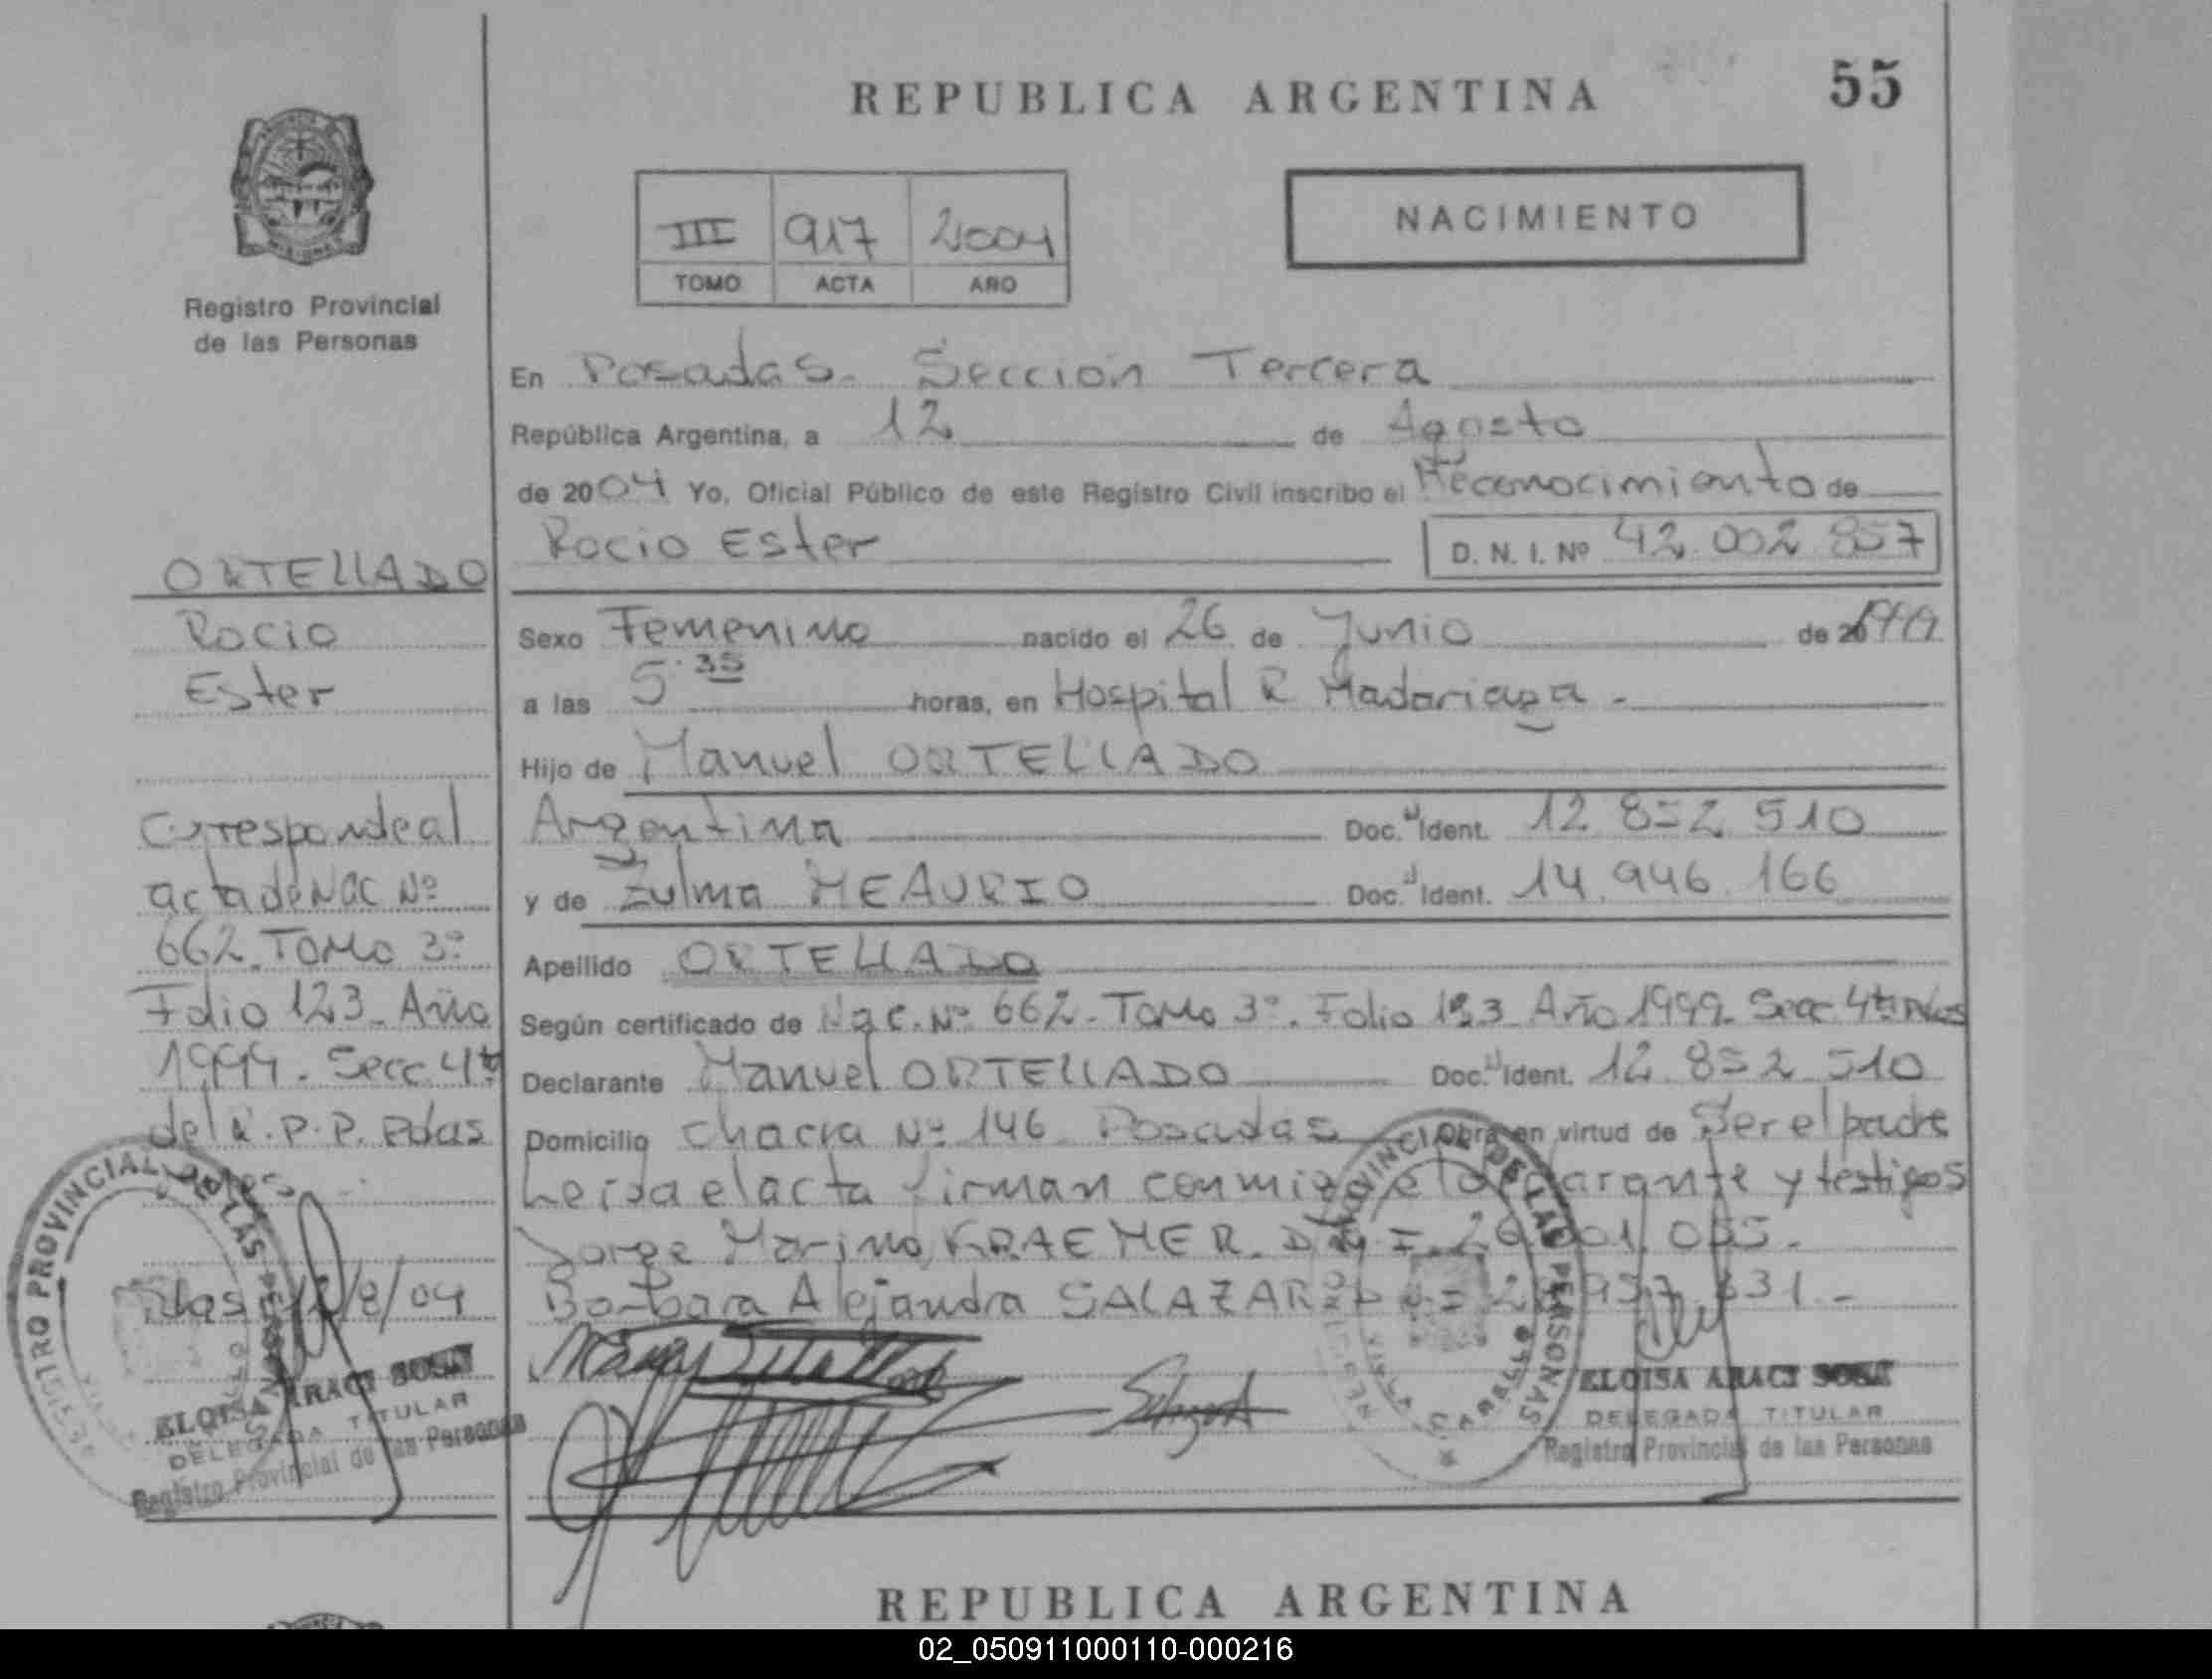 REPUBLICA ARGENTINA
55
III 917 2004
TOMO ACTA AÑO
NACIMIENTO
Registro Provincial
de las Personas
En Posadas. Sección Tercera
República Argentina, a 12 de Agosto
de 2004 Yo, Oficial Público de este Registro Civil inscribo el Reconocimiento de
Rocio Ester D. N. I. Nº 42.002.857
ORTELLADO
Rocio
Ester
Sexo Femenino nacido el 26 de Junio de 1999
a las 5:35 horas, en Hospital R Madariaga.
Hijo de Manuel ORTELLADO
Argentina Doc. Ident. 12.852.510
y de Zulma MEAURIO Doc. Ident. 14.946.166
Apellido ORTELLADO
Según certificado de Nac. Nº 662. Tomo 3º. Folio 123 Año 1999. Secc 4ta
Declarante Manuel ORTELLADO Doc. Ident. 12.852.510
Domicilio Chacra Nº 146 Posadas Obra en virtud de Ser el padre
Leida el acta firman conmigo el declarante y testigos
Jorge Marino KRAEMER. D.N.I.
Barbara Alejandra SALAZAR
Corresponde al
acta de Nac Nº
662. Tomo 3º
Folio 123. Año
1999. Secc. 4ta
del R.P.P. Pdas
Pdas 12/8/04
REGISTRO PROVINCIAL DE LAS PERSONAS
ELOISA ARACI SOSA
DELEGADA TITULAR
Registro Provincial de las Personas
PROVINCIAL DE LAS PERSONAS
ELOISA ARACI SOSA
DELEGADA TITULAR
Registro Provincial de las Personas
REPUBLICA ARGENTINA
02_050911000110-000216